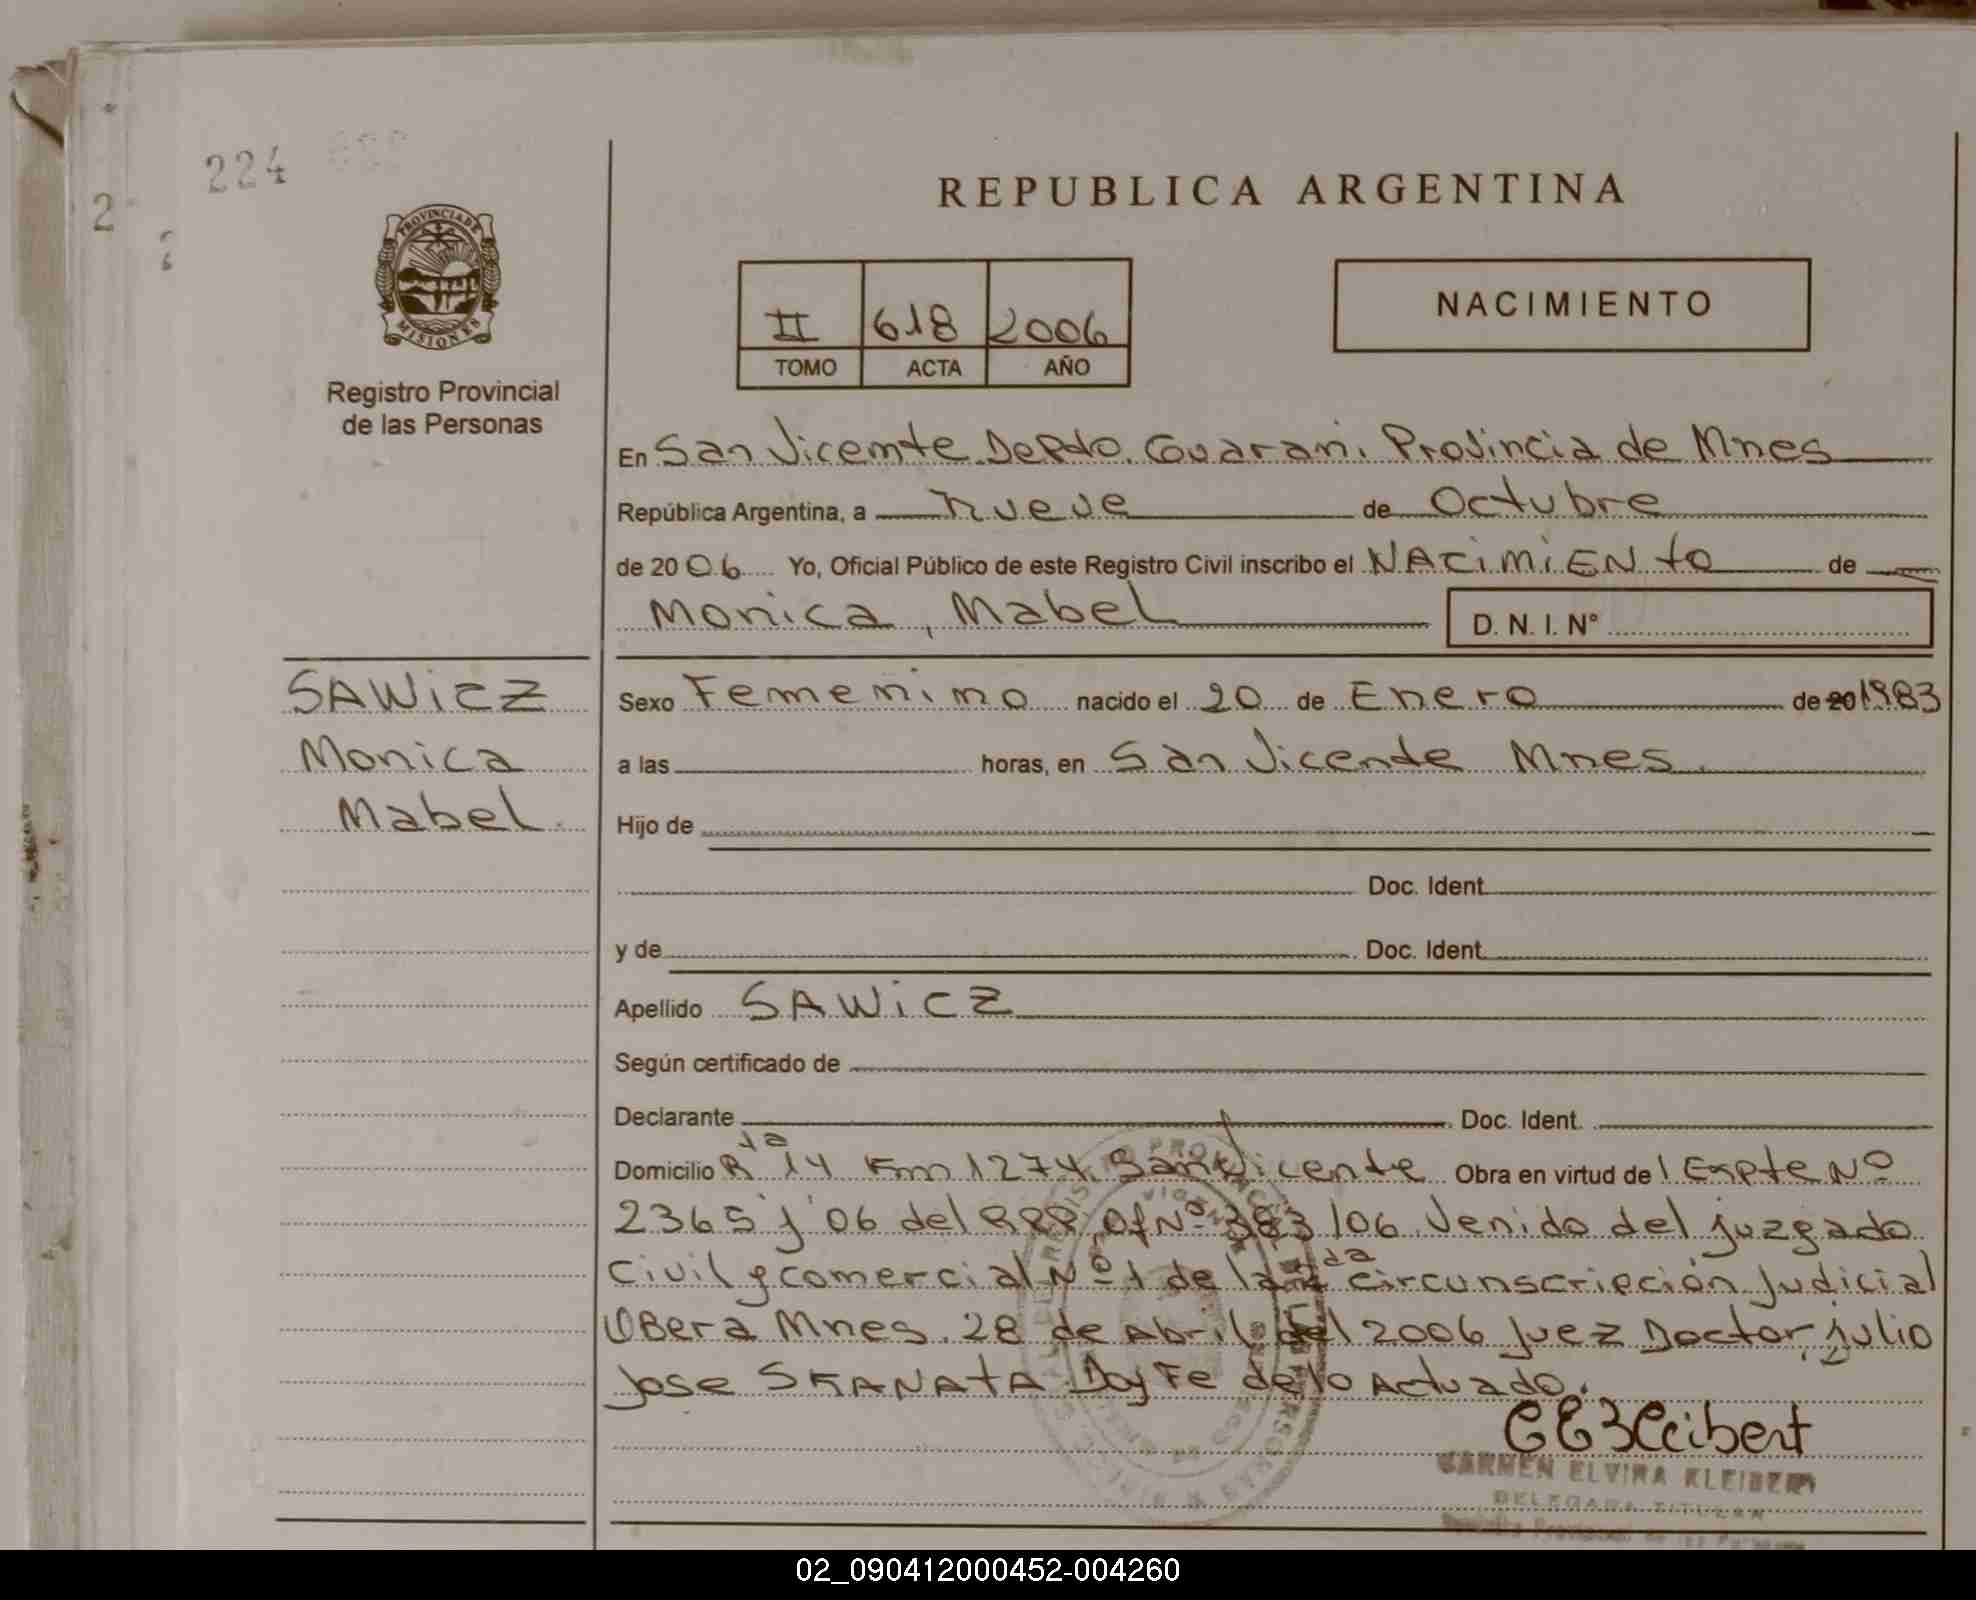 224
2
REPUBLICA ARGENTINA
PROVINCIA DE
MISIONES
Registro Provincial
de las Personas
II 618 2006
TOMO ACTA AÑO
NACIMIENTO
En San Vicemte Depdo. Guarani. Provincia de Mnes
República Argentina, a nueve de Octubre
de 2006 Yo, Oficial Público de este Registro Civil inscribo el NACimiENto de
Monica, Mabel D. N. I. N°
SAWicZ
Monica
Mabel.
Sexo Femenino nacido el 20 de Enero de 20 1983
a las horas, en San Vicende Mnes.
Hijo de
Doc. Ident.
y de Doc. Ident.
Apellido SAWicZ
Según certificado de
Declarante Doc. Ident.
Domicilio Rta 14 Km 1274 San Vicente Obra en virtud de l Expte Nº
2365 j 06 del RPP Of Nº 383/06 Venido del juzgado
Civil y comercial Nº 1 de la 2da circunscripción Judicial
OBera Mnes. 28 de Abril del 2006 Juez Doctor, julio
Jose SKANAtA Doy Fe de lo Actuado.
CARMEN ELVIRA KLEIBERT
DELEGADA TITULAR
02_090412000452-004260